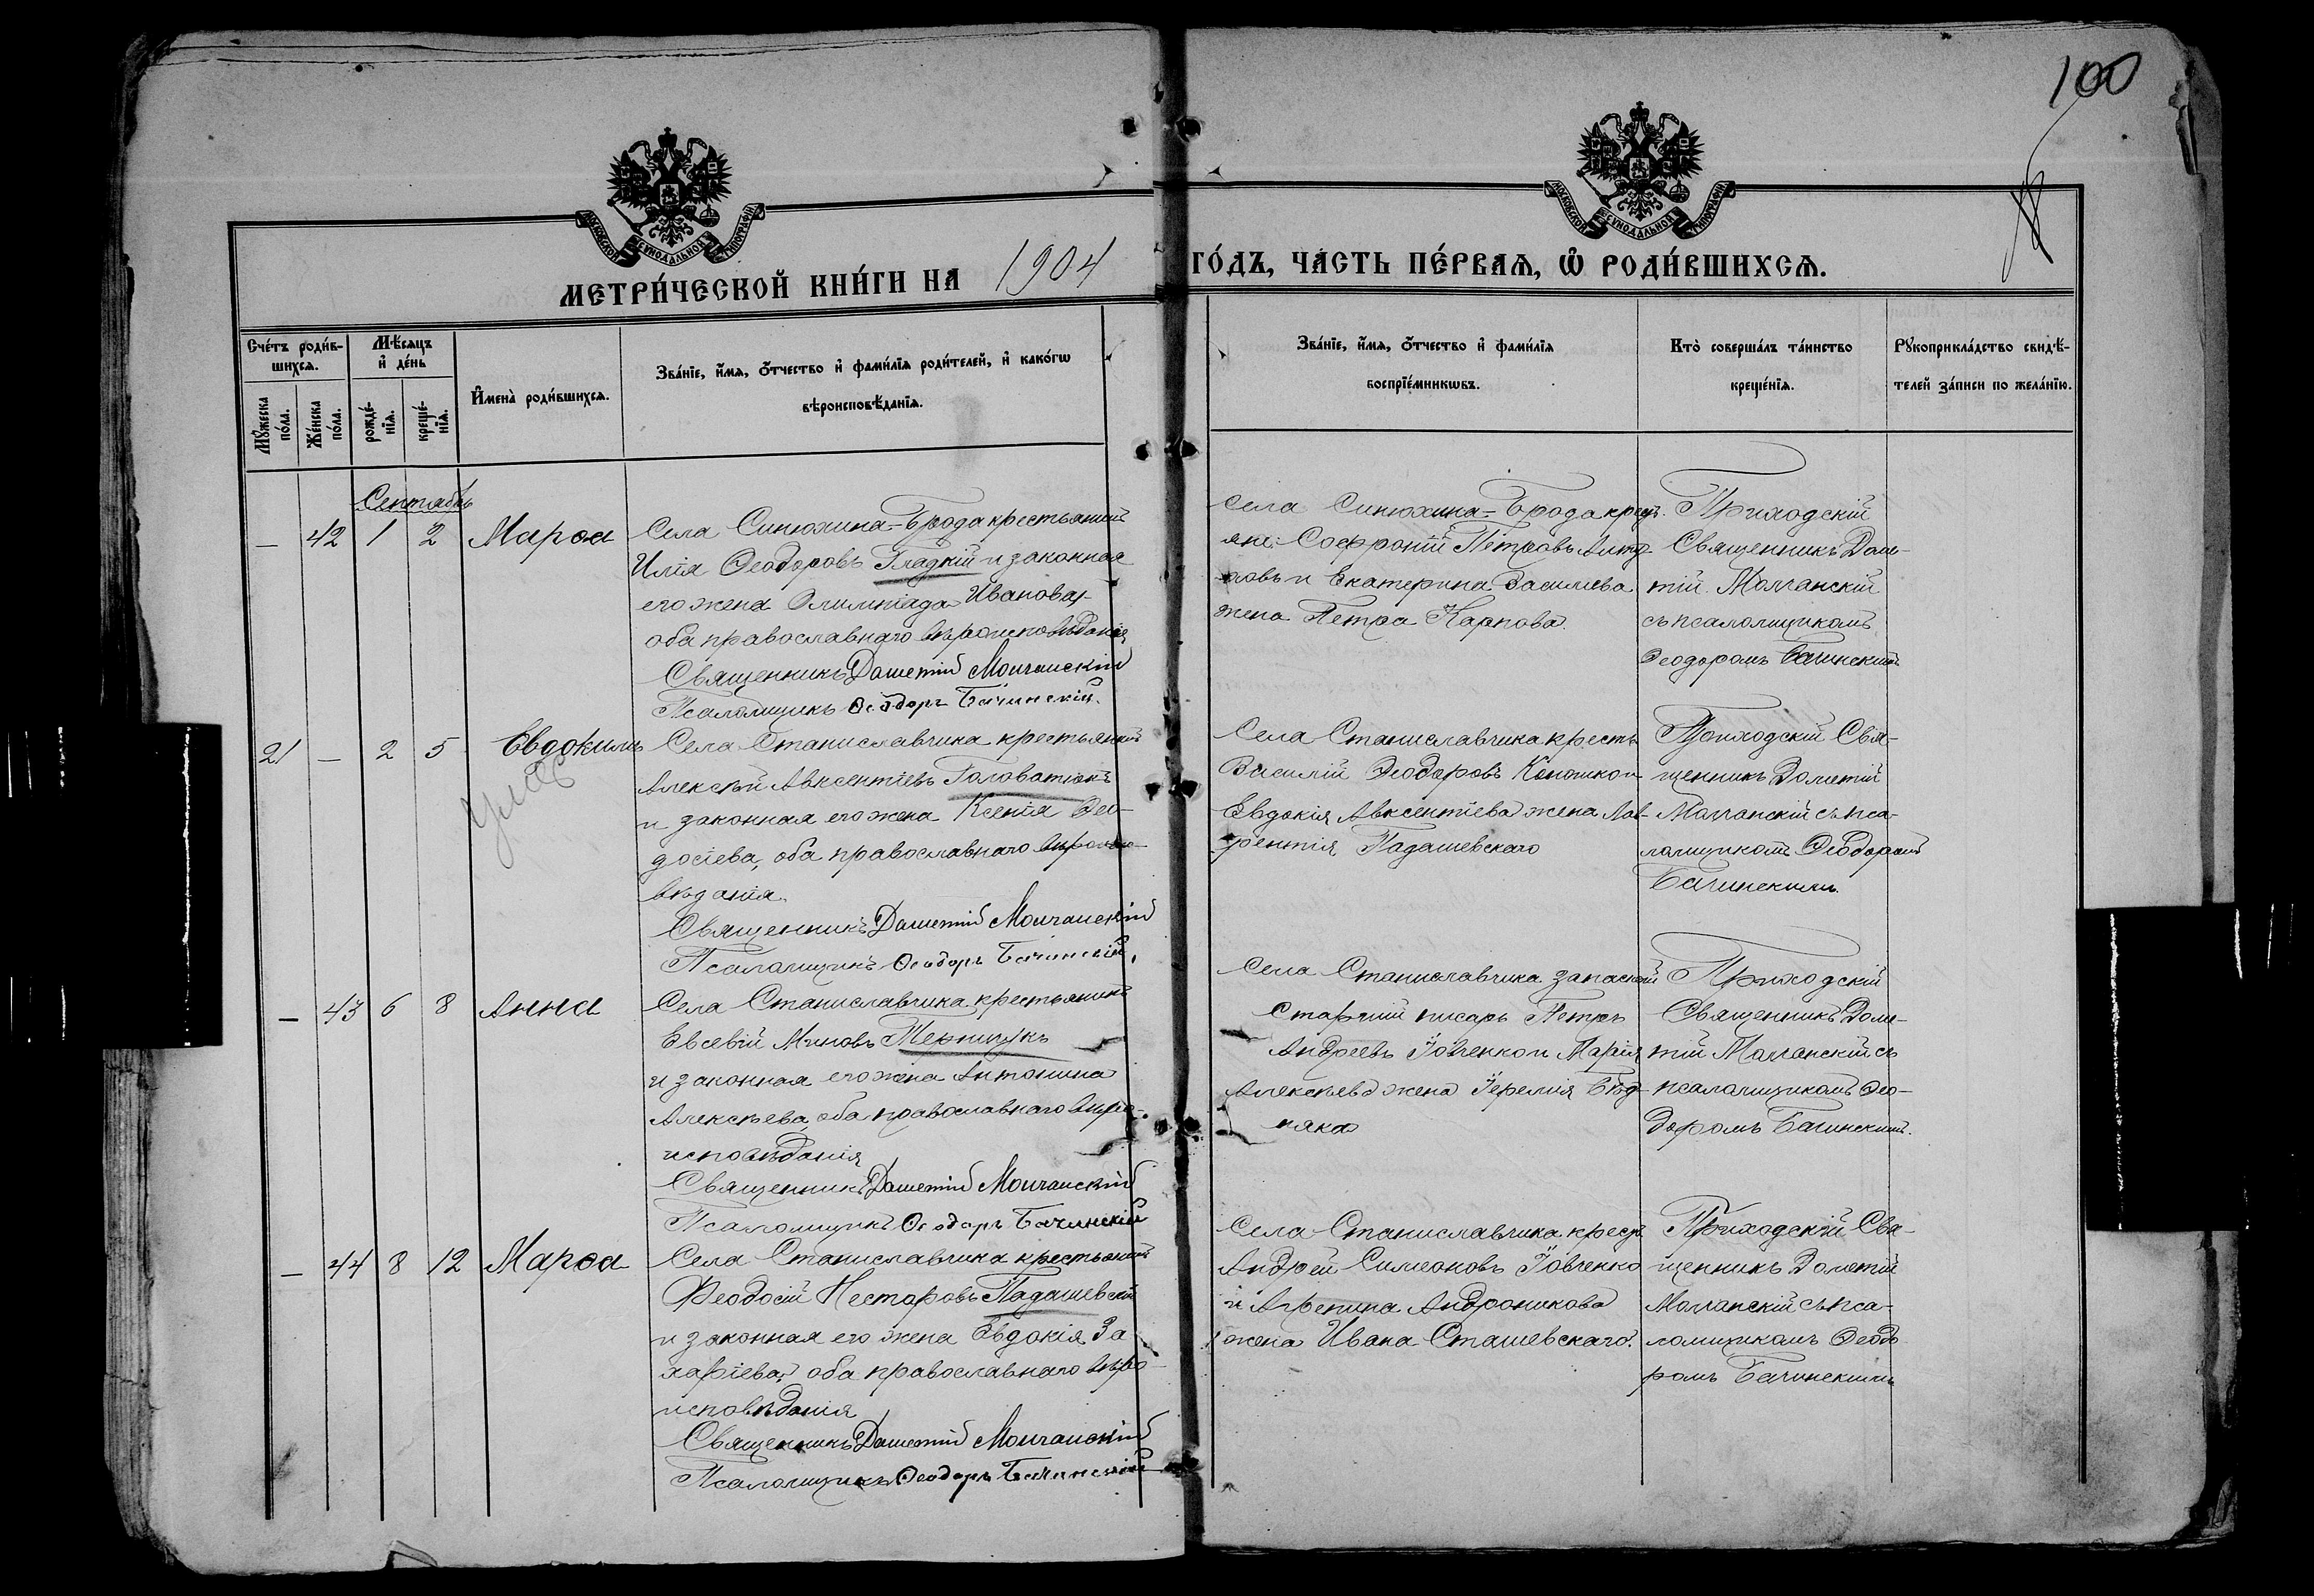 100
МОСКОВСКОЙ СУНОДАЛЬНОЙ ТИПОГРАФІИ
МОСКОВСКОЙ СУНОДАЛЬНОЙ ТИПОГРАФІИ
МЕТРИ́ЧЕСКОЙ КНИ́ГИ НА 1904 ГО́ДЪ, ЧА́СТЬ ПЕ́РВАѦ, Ѡ҆ РОДИ́ВШИХСѦ.
Сче́тъ роди́в-
шихсѧ.
Мꙋ́жеска
по́ла.
Же́нска
по́ла.
Мѣ́сѧцъ
и҆ де́нь
рожде́-
нїѧ.
креще́-
нїѧ.
И҆мена̀ роди́вшихсѧ.
Зва́нїе, и҆́мѧ, ѻ҆́тчество и҆ фами́лїѧ роди́телей, и҆ како́гѡ
вѣроисповѣ́данїѧ.
Зва́нїе, и҆́мѧ, ѻ҆́тчество и҆ фами́лїѧ
воспрїе́мникѡвъ.
Кто̀ соверша́лъ та́инство
креще́нїѧ.
Рꙋкоприкла́дство свидѣ́-
телей за́писи по жела́нїю.
Сентябрь
— 42 1 2 Марѳа
Села Синюхина-Брода крестьянинъ
Илія Ѳеодоровъ Гладкій и законная
его жена Олимпіада Иванова,
оба православнаго вѣроисповѣданія
Священникъ Дометій Молчанскій
Псаломщикъ Ѳеодоръ Бачинскій.
Села Синюхина-Брода крест.
яне: Софроній Петровъ
и Екатерина Василіева
жена Петра Карпова.
Приходскій
Священникъ Доме-
тій Молчанскій
съ псаломщикомъ
Ѳеодоромъ Бачинскимъ
21 — 2 5 Евдокимъ
Села Станиславчика крестьянинъ
Алексѣй Авксентіевъ Головатюкъ
и законная его жена Ксенія Ѳео-
досіева, оба православнаго вѣроиспо-
вѣданія.
Священникъ Дометій Молчанскій
Псаломщикъ Ѳеодоръ Бачинскій.
Села Станиславчика крестъ.
Василій Ѳеодоровъ
Евдокія Авксентіева жена Лав-
рентія Падашевскаго
Приходскій Свя-
щенникъ Дометій
Молчанскій съ пса-
ломщикомъ Ѳеодоромъ
Бачинскимъ.
— 43 6 8 Анна
Села Станиславчика крестьянинъ
Евсевій Миновъ
и законная его жена Антонина
Алексѣева, оба православнаго вѣро-
исповѣданія
Священникъ Дометій Молчанскій
Псаломщикъ Ѳеодоръ Бачинскій
Села Станиславчика запасной
старшій писарь Петръ
Андреевъ Іовченко и Марія
Алексѣева жена Іеремія Бѣд-
няка
Приходскій
Священникъ Доме-
тій Молчанскій съ
псаломщикомъ Ѳео-
доромъ Бачинскимъ.
— 44 8 12 Марѳа
Села Станиславчика крестьянинъ
Феодосій Несторовъ Падашевскій
и законная его жена Евдокія За-
харіева, оба православнаго вѣро-
исповѣданія
Священникъ Дометій Молчанскій
Псаломщикъ Ѳеодоръ Бачинскій
Села Станиславчика крест.
Андрей Симеоновъ Іовченко
и Агрепина Андроникова
жена Ивана Сташевскаго.
Приходскій Свя-
щенникъ Дометій
Молчанскій съ пса-
ломщикомъ Ѳеодо
ромъ Бачинскимъ